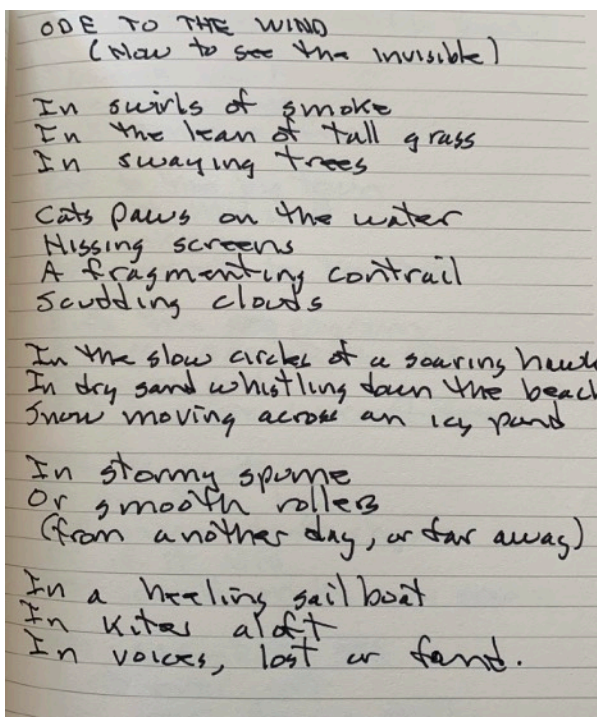 ODE TO THE WIND
(How to see the invisible)
In swirls of smoke
In the lean of tall grass
In swaying trees
Cats paws on the water
Hissing screens
A fragmenting contrail
Scudding clouds
In the slow circles of a soaring hawk
In dry sand whistling down the beach
Snow moving across an icy pond
In stormy spume
Or smooth rollers
(from another day, or far away)
In a heeling sailboat
In kites aloft
In voices, lost or found.